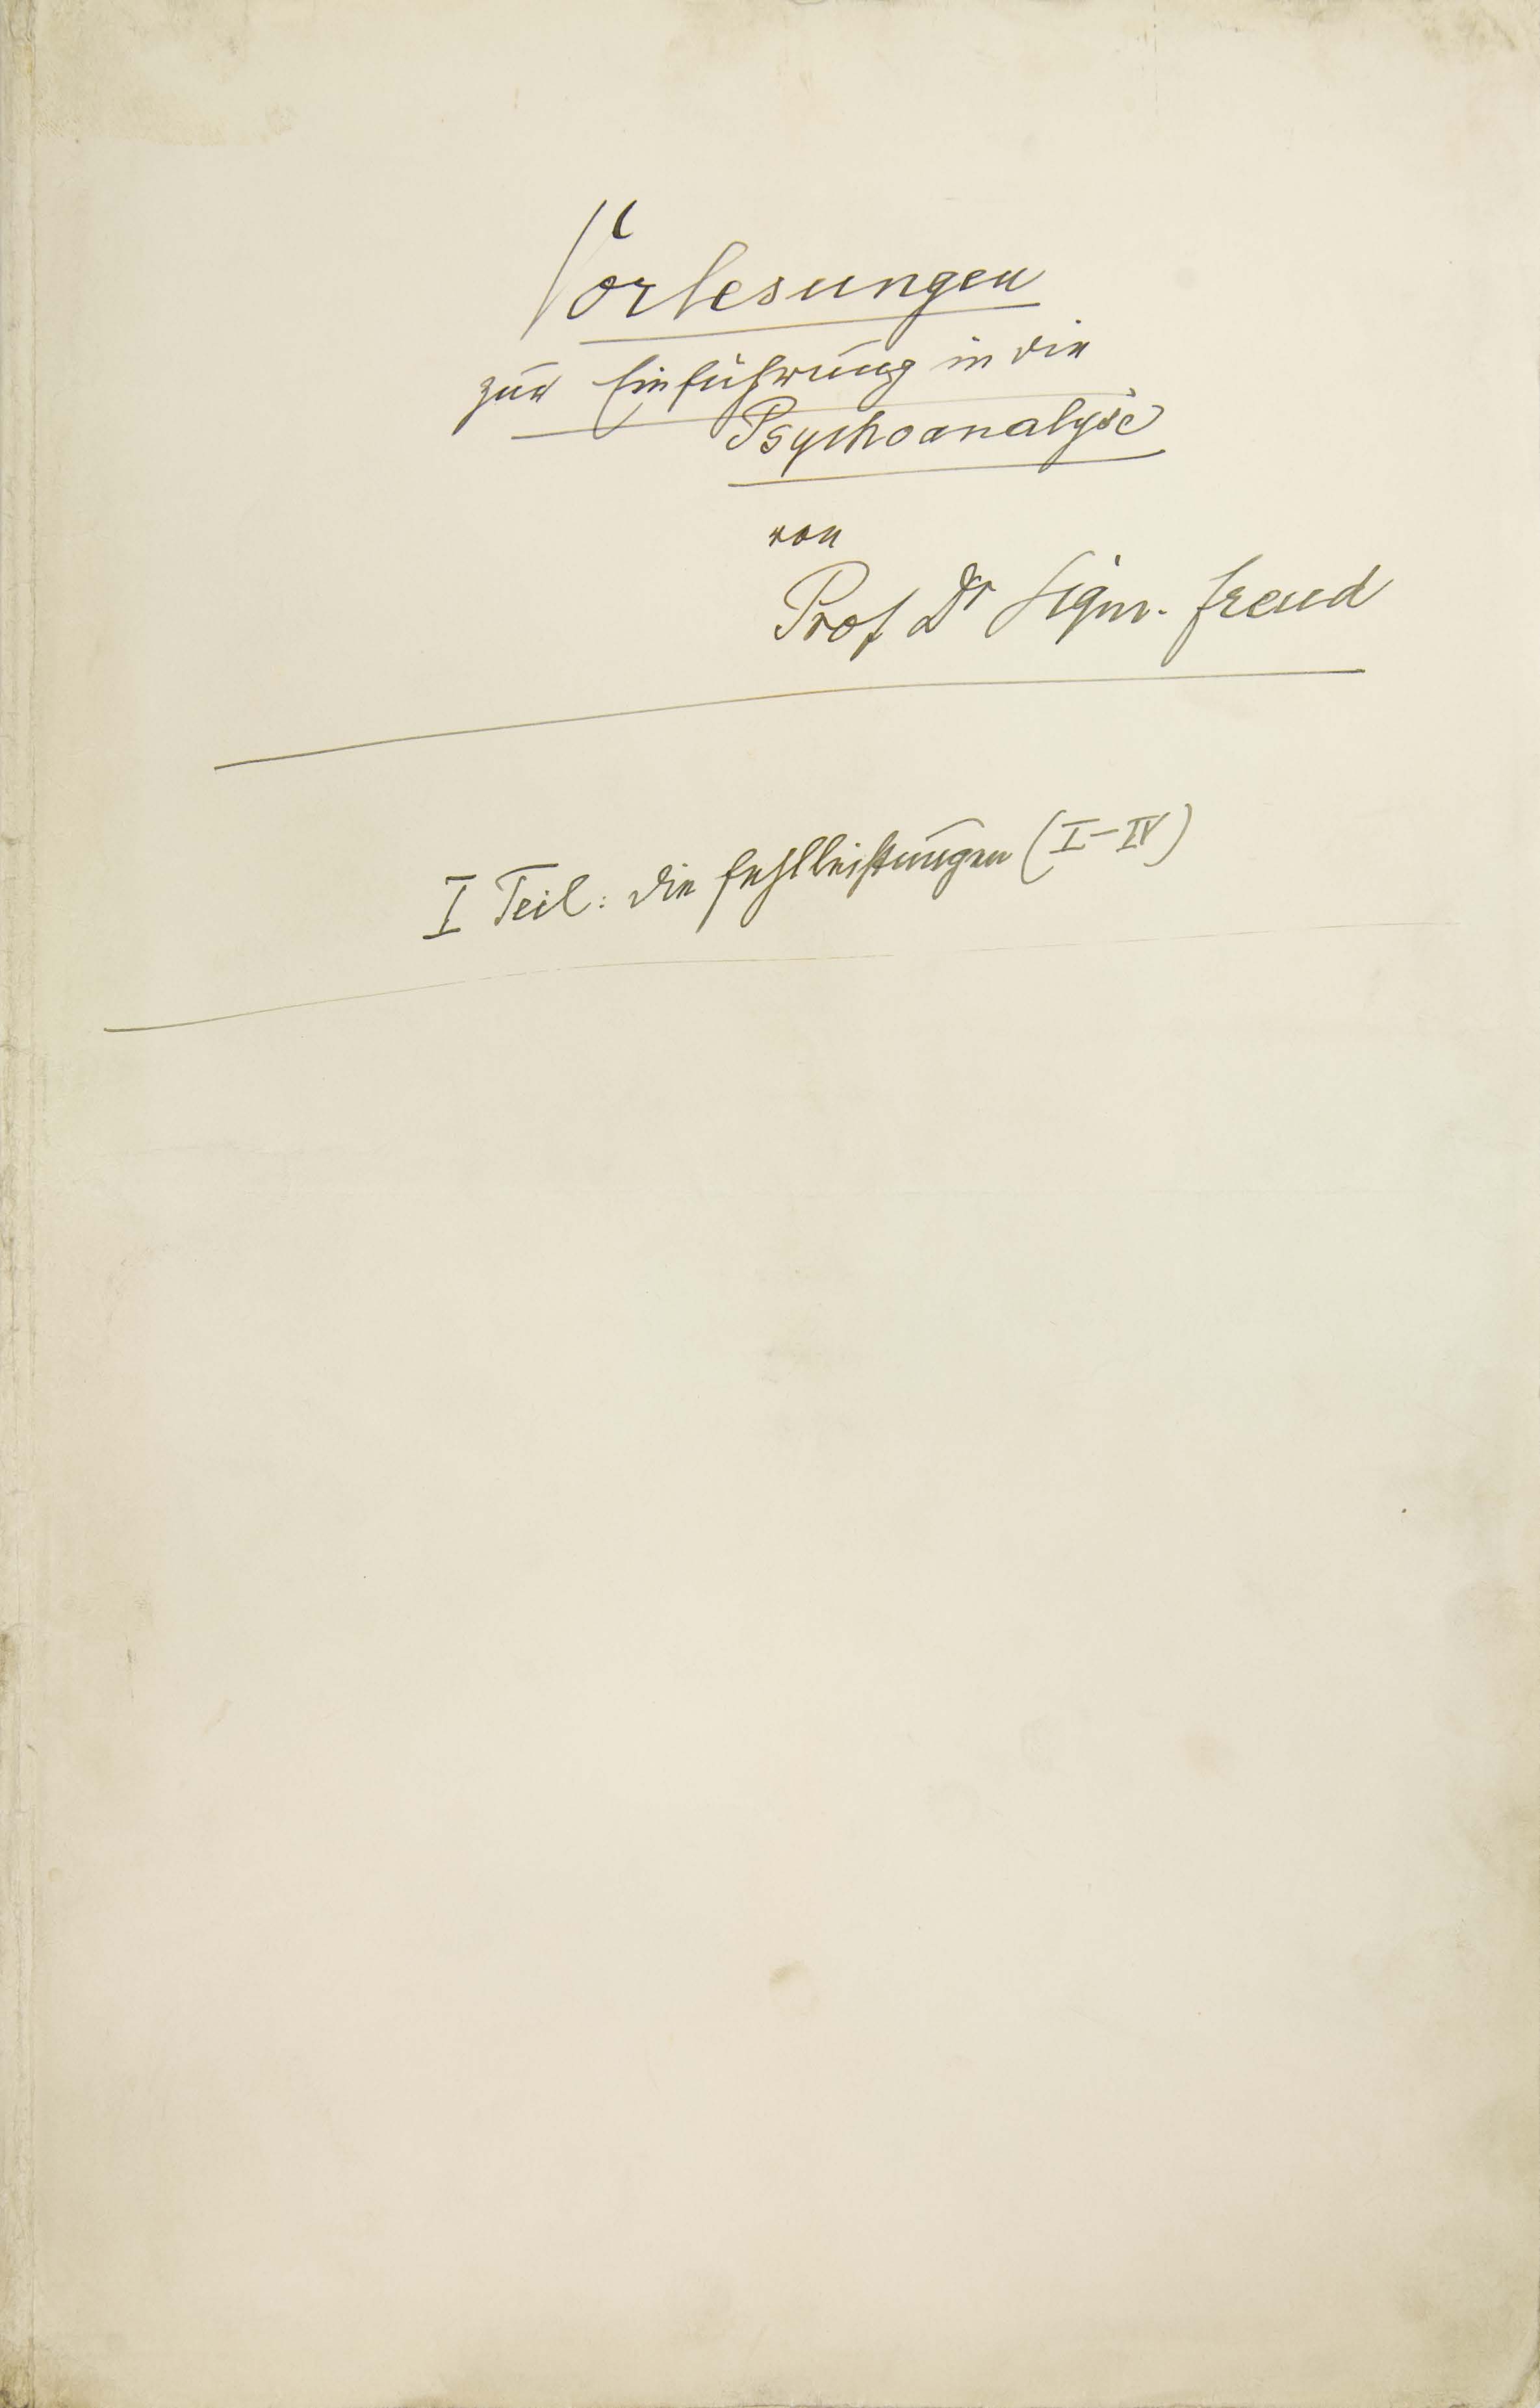 Vorlesungen
zur Einführung in die
Psychoanalyse
von
Prof Dr Sigm. Freud
I Teil: die Fehlleistungen (I–IV)